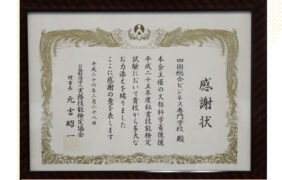 感謝状
四国総合ビジネス専門学校 殿
本会主催の文部科学省後援
平成二十五年度秘書技能検定
試験において貴校から多大な
お力添えを賜りました
ここに感謝の意を表します
平成二十六年二月二十八日
公益財団法人実務技能検定協会
理事長